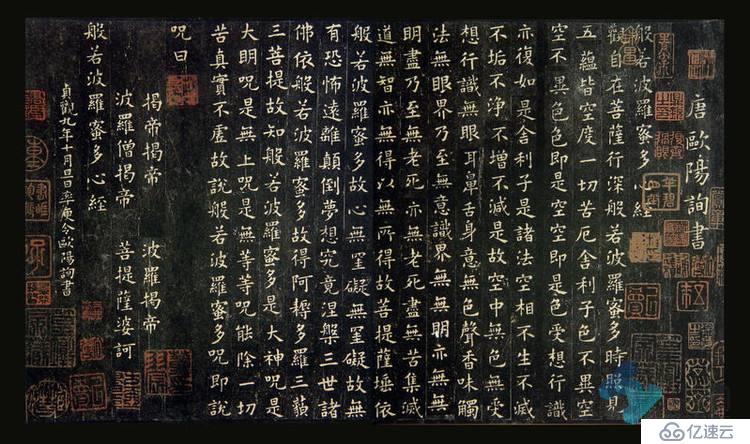 唐歐陽詢書
般若波羅蜜多心經
觀自在菩薩行深般若波羅蜜多時照見
五蘊皆空度一切苦厄舍利子色不異空
空不異色色即是空空即是色受想行識
亦復如是舍利子是諸法空相不生不滅
不垢不淨不增不減是故空中無色無受
想行識無眼耳鼻舌身意無色聲香味觸
法無眼界乃至無意識界無無明亦無無
明盡乃至無老死亦無老死盡無苦集滅
道無智亦無得以無所得故菩提薩埵依
般若波羅蜜多故心無罣礙無罣礙故無
有恐怖遠離顛倒夢想究竟涅槃三世諸
佛依般若波羅蜜多故得阿耨多羅三藐
三菩提故知般若波羅蜜多是大神呪是
大明呪是無上呪是無等等呪能除一切
苦真實不虛故說般若波羅蜜多呪即說
呪曰
揭帝揭帝 波羅揭帝
波羅僧揭帝 菩提薩婆訶
般若波羅蜜多心經
貞觀九年十月旦日率更令歐陽詢書
亿速云